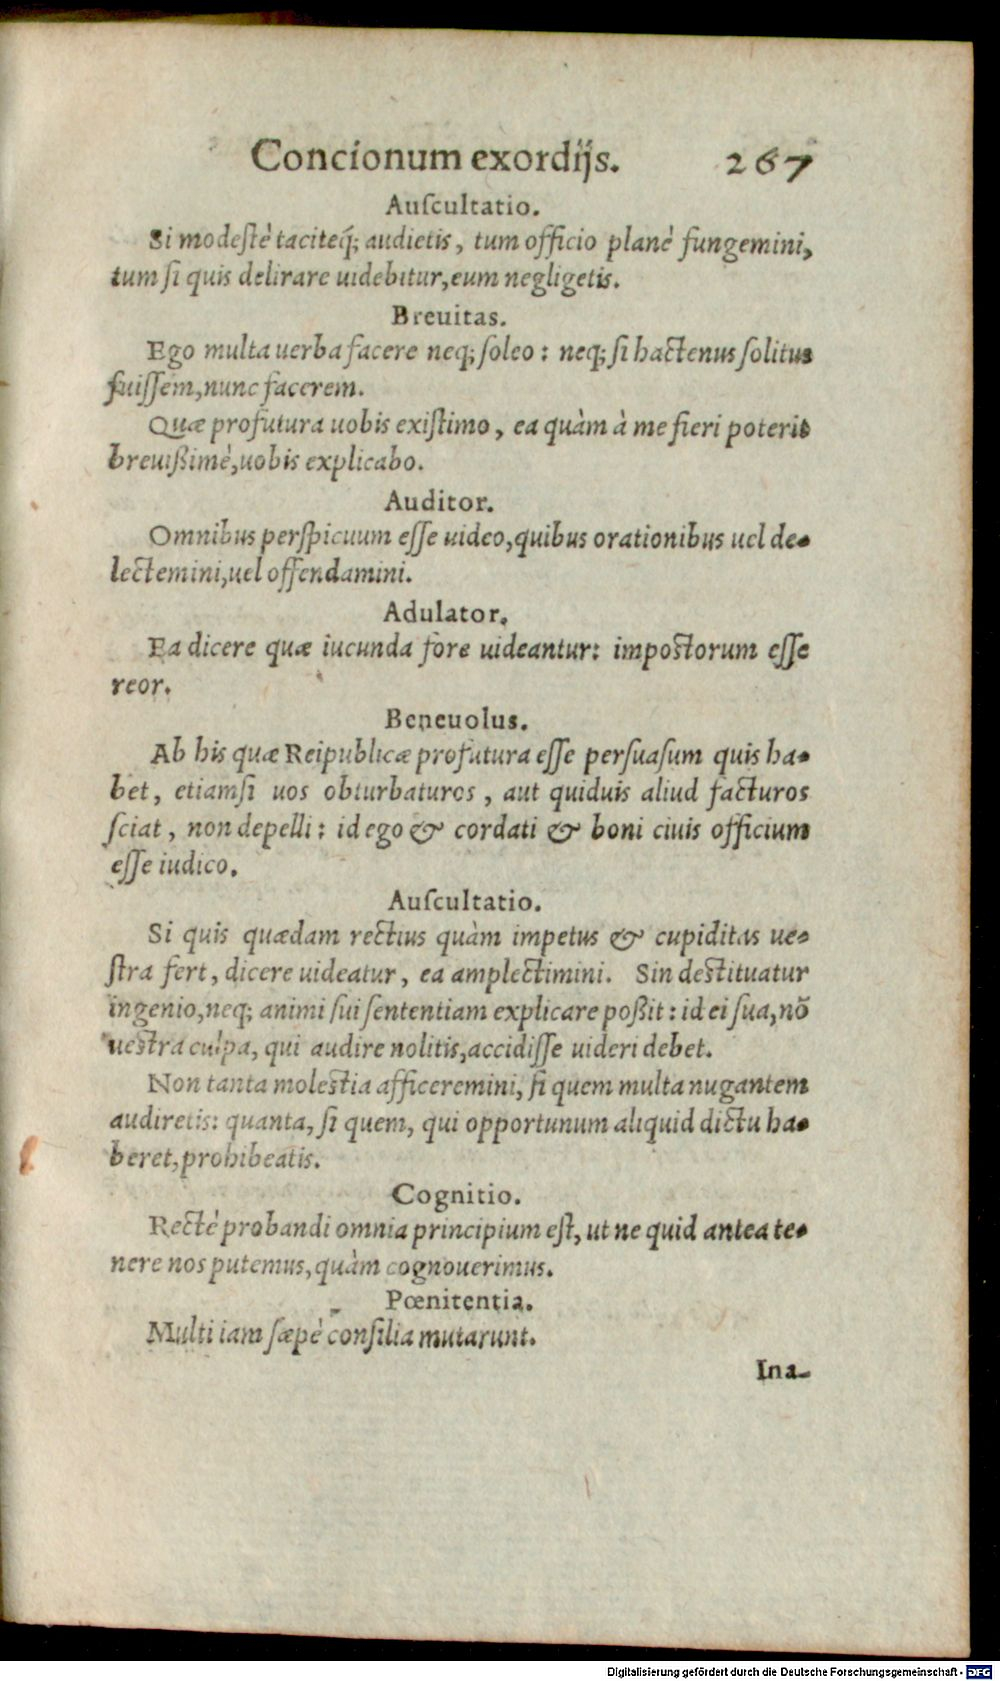 Concionum exordijs. 267
Auſcultatio.
Si modeſtè taciteq́; audietis, tum officio planè fungemini,
tum ſi quis delirare uidebitur, eum negligetis.
Breuitas.
Ego multa uerba facere neq; ſoleo: neq; ſi hactenus ſolitus
fuiſſem, nunc facerem.
Quæ profutura uobis exiſtimo, ea quàm à me fieri poterit
breuißimè, uobis explicabo.
Auditor.
Omnibus perſpicuum eſſe uideo, quibus orationibus uel de-
lectemini, uel offendamini.
Adulator.
Ea dicere quæ iucunda fore uideantur: impoſtorum eſſe
reor.
Beneuolus.
Ab his quæ Reipublicæ profutura eſſe perſuaſum quis ha-
bet, etiamſi uos obturbaturos, aut quiduis aliud facturos
ſciat, non depelli: id ego & cordati & boni ciuis officium
eſſe iudico.
Auſcultatio.
Si quis quædam rectius quàm impetus & cupiditas ue-
ſtra fert, dicere uideatur, ea amplectimini. Sin deſtituatur
ingenio, neq; animi ſui ſententiam explicare poßit: id ei ſua, nō
ueſtra culpa, qui audire nolitis, accidiſſe uideri debet.
Non tanta moleſtia afficeremini, ſi quem multa nugantem
audiretis: quanta, ſi quem, qui opportunum aliquid dictu ha-
beret, prohibeatis.
Cognitio.
Rectè probandi omnia principium eſt, ut ne quid antea te-
nere nos putemus, quàm cognouerimus.
Pœnitentia.
Multi iam ſæpè conſilia mutarunt.
Ina-
Digitalisierung gefördert durch die Deutsche Forschungsgemeinschaft - DFG